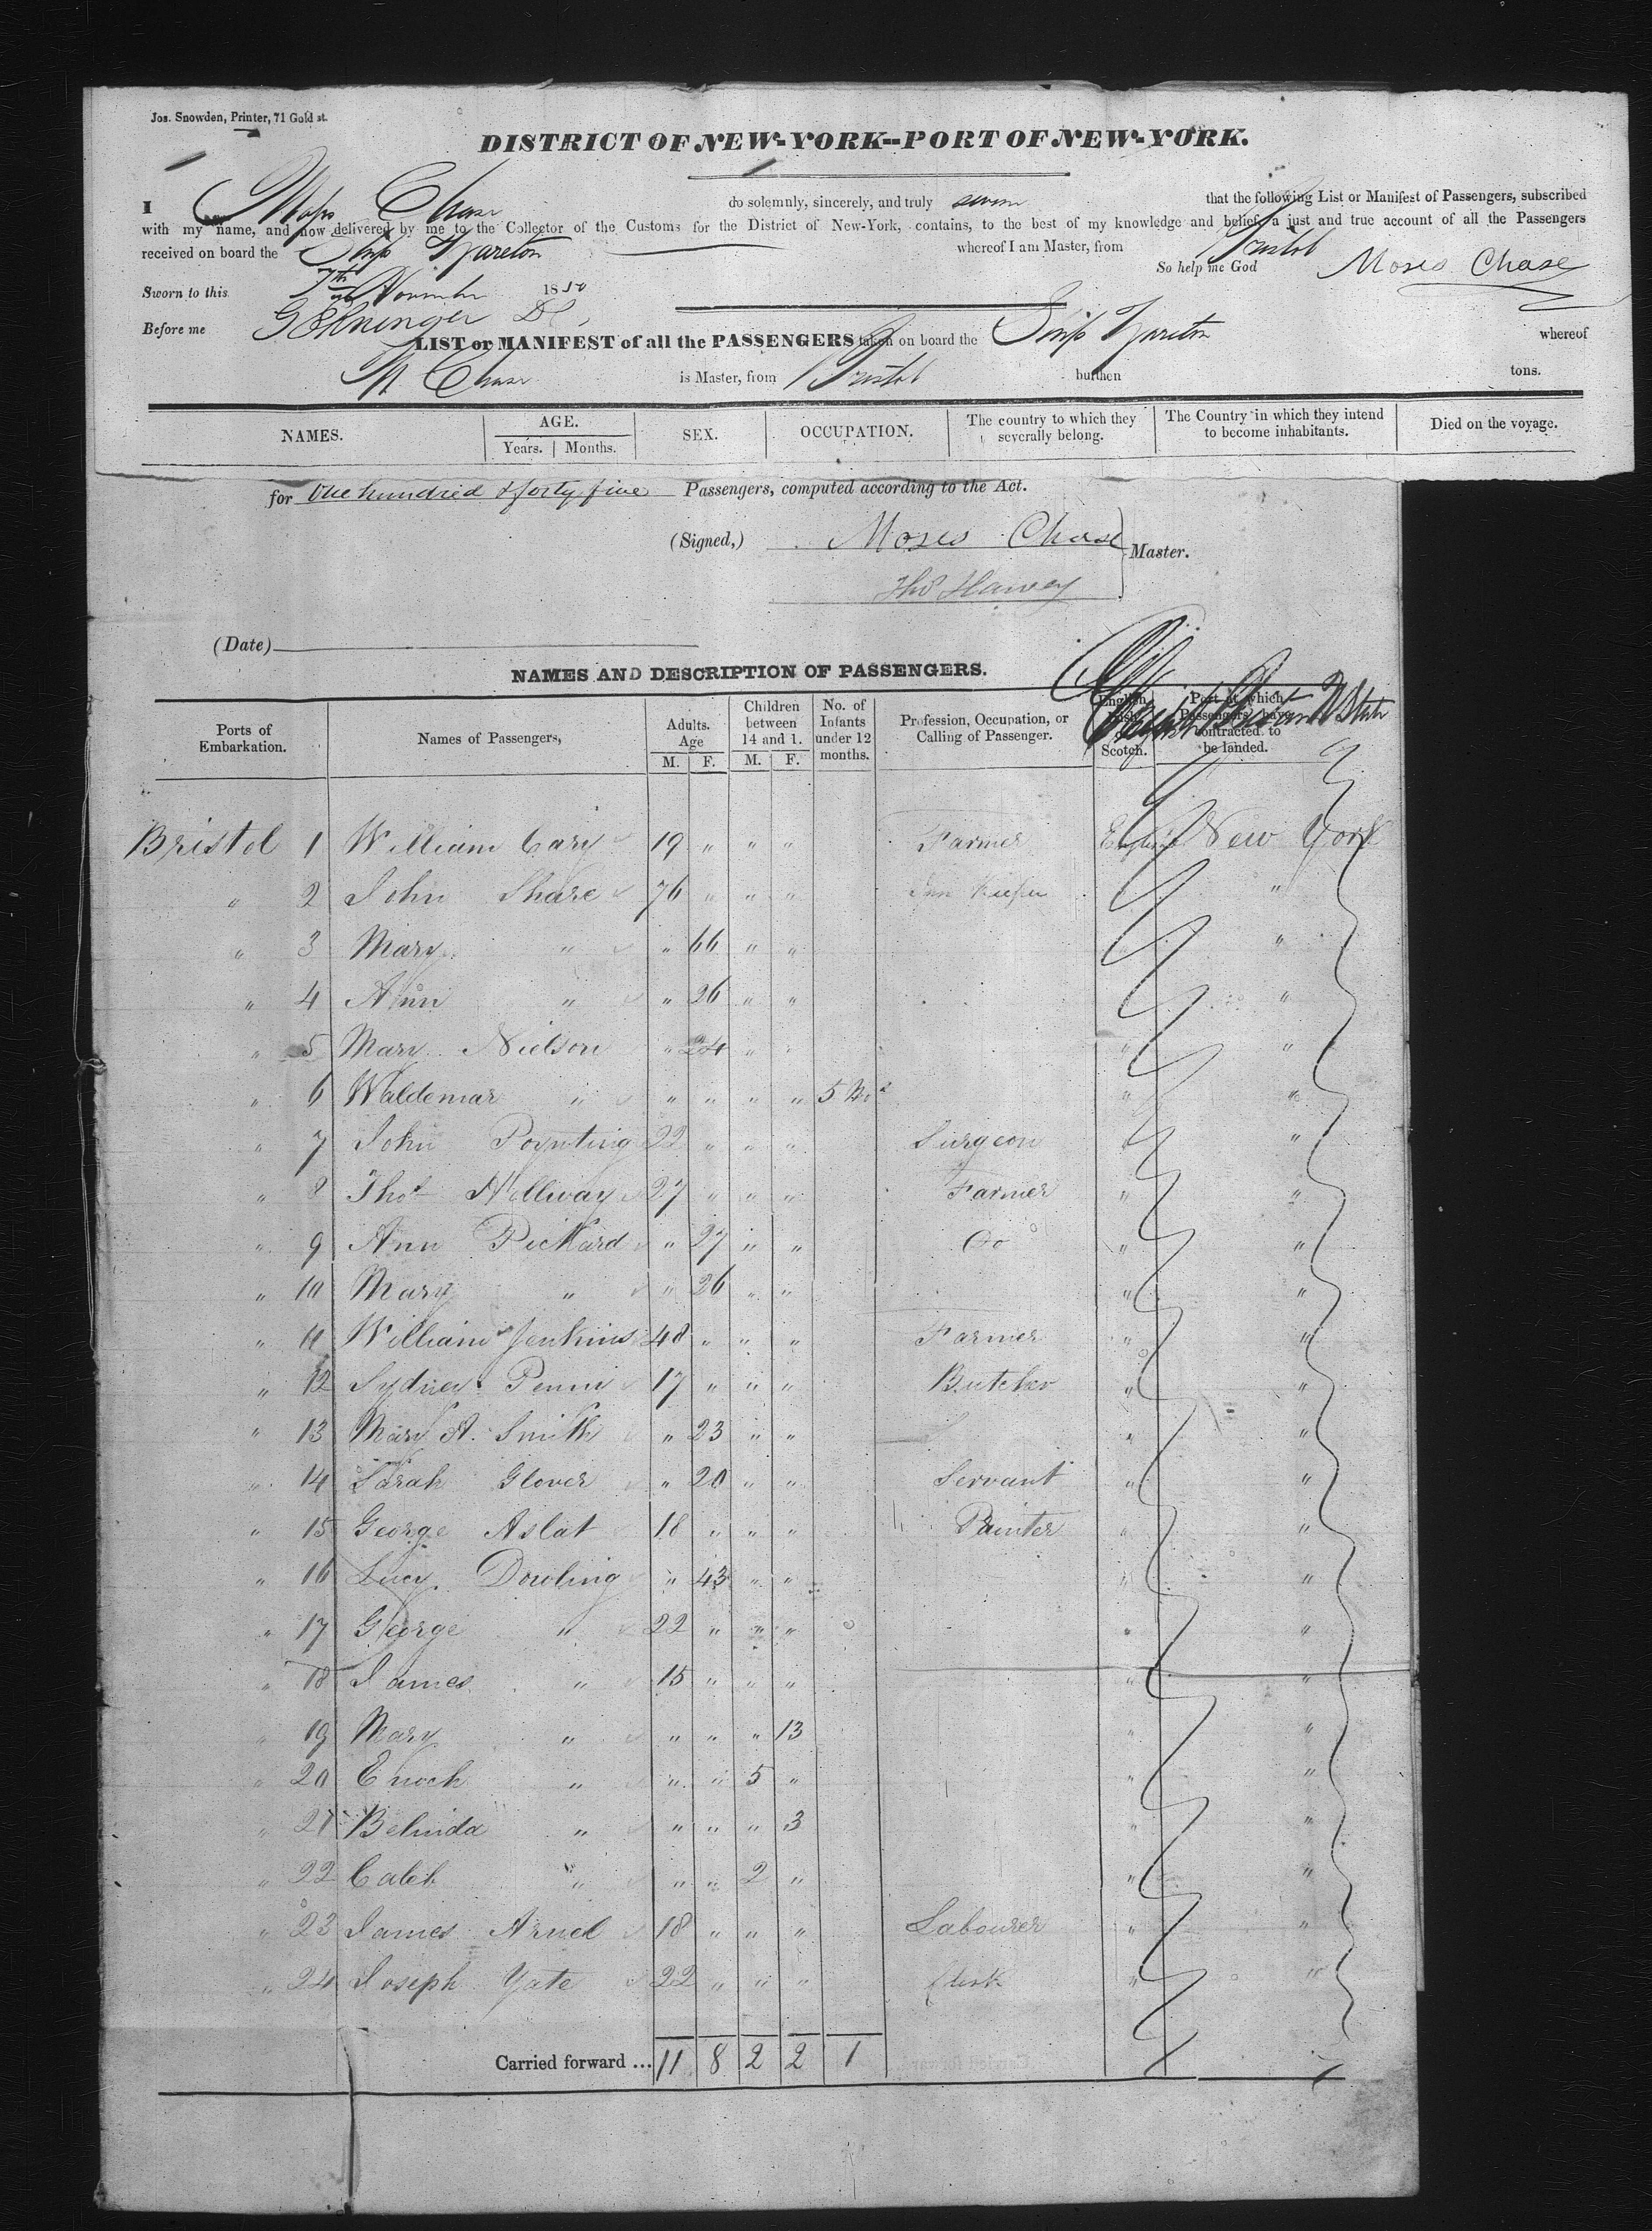 Jos. Snowden, Printer, 71 Gold st.
DISTRICT OF NEW-YORK--PORT OF NEW-YORK.
I Moses Chase do solemnly, sincerely, and truly swear that the following List or Manifest of Passengers, subscribed
with my name, and now delivered by me to the Collector of the Customs for the District of New-York, contains, to the best of my knowledge and belief, a just and true account of all the Passengers
received on board the Ship whereof I am Master, from Bristol
So help me God Moses Chase
Sworn to this 7th November 1850
Before me
LIST or MANIFEST of all the PASSENGERS taken on board the Ship whereof
M Chase is Master, from Bristol burthen tons.
NAMES. AGE. Years. Months. SEX. OCCUPATION. The country to which they severally belong. The Country in which they intend to become inhabitants. Died on the voyage.
for One hundred & forty five Passengers, computed according to the Act.
(Signed,) Moses Chase Master.
Thos Harvey
(Date)
NAMES AND DESCRIPTION OF PASSENGERS.
Ports of Embarkation. Names of Passengers, Adults. Age M. F. Children between 14 and 1. M. F. No. of Infants under 12 months. Profession, Occupation, or Calling of Passenger. English, Scotch. Port at which Passengers have contracted to be landed.
Bristol 1 William Cary 19 " " " Farmer New York
" 2 John Share 76 " " " Inn Keeper "
" 3 Mary " " 66 " " "
" 4 Ann " " 26 " " "
" 5 Mary Nielson " 24 " " " "
" 6 Waldemar " " " " " 5 Mos " "
" 7 John Poynting 22 " " " Surgeon " "
" 8 Thos Hollway 27 " " " Farmer " "
" 9 Ann Pickard " 27 " " Do " "
" 10 Mary " " 26 " " " "
" 11 William Jenkins 48 " " " Farmer " "
" 12 Sydney Penny 17 " " " Butcher " "
" 13 Mary A. Smith " 23 " " " "
" 14 Sarah Glover " 20 " " Servant " "
" 15 George Aslat 18 " " " Painter " "
" 16 Lucy Dowling " 43 " " " "
" 17 George " 22 " " " " "
" 18 James " 15 " " " " "
" 19 Mary " " " " 13 " "
" 20 Enoch " " " 5 " " "
" 21 Belinda " " " " 3 " "
" 22 Caleb " " " 2 " " "
" 23 James Arned 18 " " " Labourer " "
" 24 Joseph Yate 22 " " " Clerk " "
Carried forward ... 11 8 2 2 1